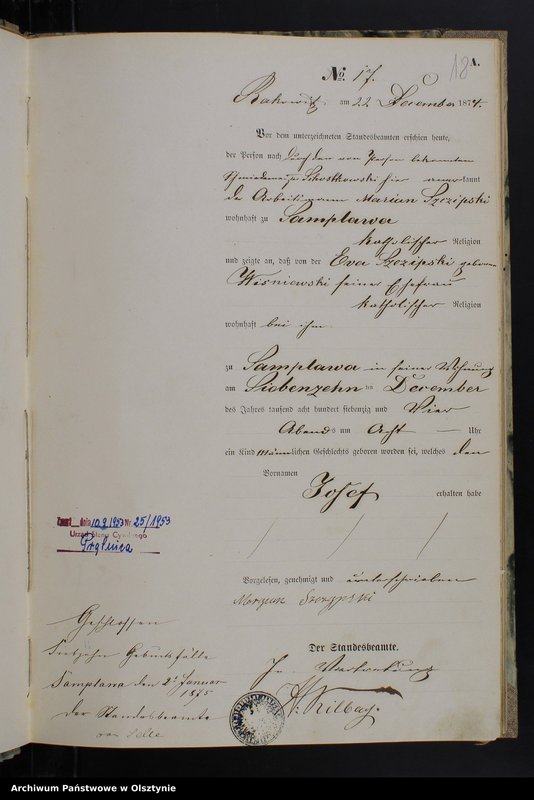 18
A.
No. 17.
Rakowitz am 22 December 1874.
Vor dem unterzeichneten Standesbeamten erschien heute,
der Person nach durch den von Person bekannten
hier anerkannt
der Arbeitsmann Marian Szczipski
wohnhaft zu Samplawa
katholischer Religion
und zeigte an, daß von der Eva Szczipski geborene
Wisniewski seiner Ehefrau
katholischer Religion
wohnhaft bei ihm
zu Samplawa in seiner Wohnung
am Siebenzehn ten December
des Jahres tausend acht hundert siebenzig und Vier
Abends um Acht Uhr
ein Kind männlichen Geschlechts geboren worden sei, welches den
Vornamen
Josef erhalten habe
Vorgelesen, genehmigt und unterschrieben
Der Standesbeamte.
In Vertretung
Zmarł dnia 10.9.1953 Nr. 25/1953
Urząd Stanu Cywilnego
Geschlossen
Siebzehn Geburtsfälle
Samplawa den 2t Januar
1875
Der Standesbeamte
Archiwum Państwowe w Olsztynie